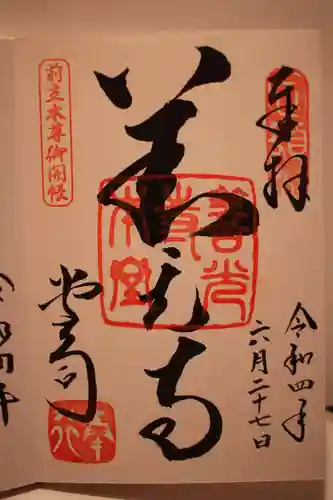 奉拝
令和四年
六月二十七日
善光寺
善光
寺
本堂
前立本尊御開帳
堂司